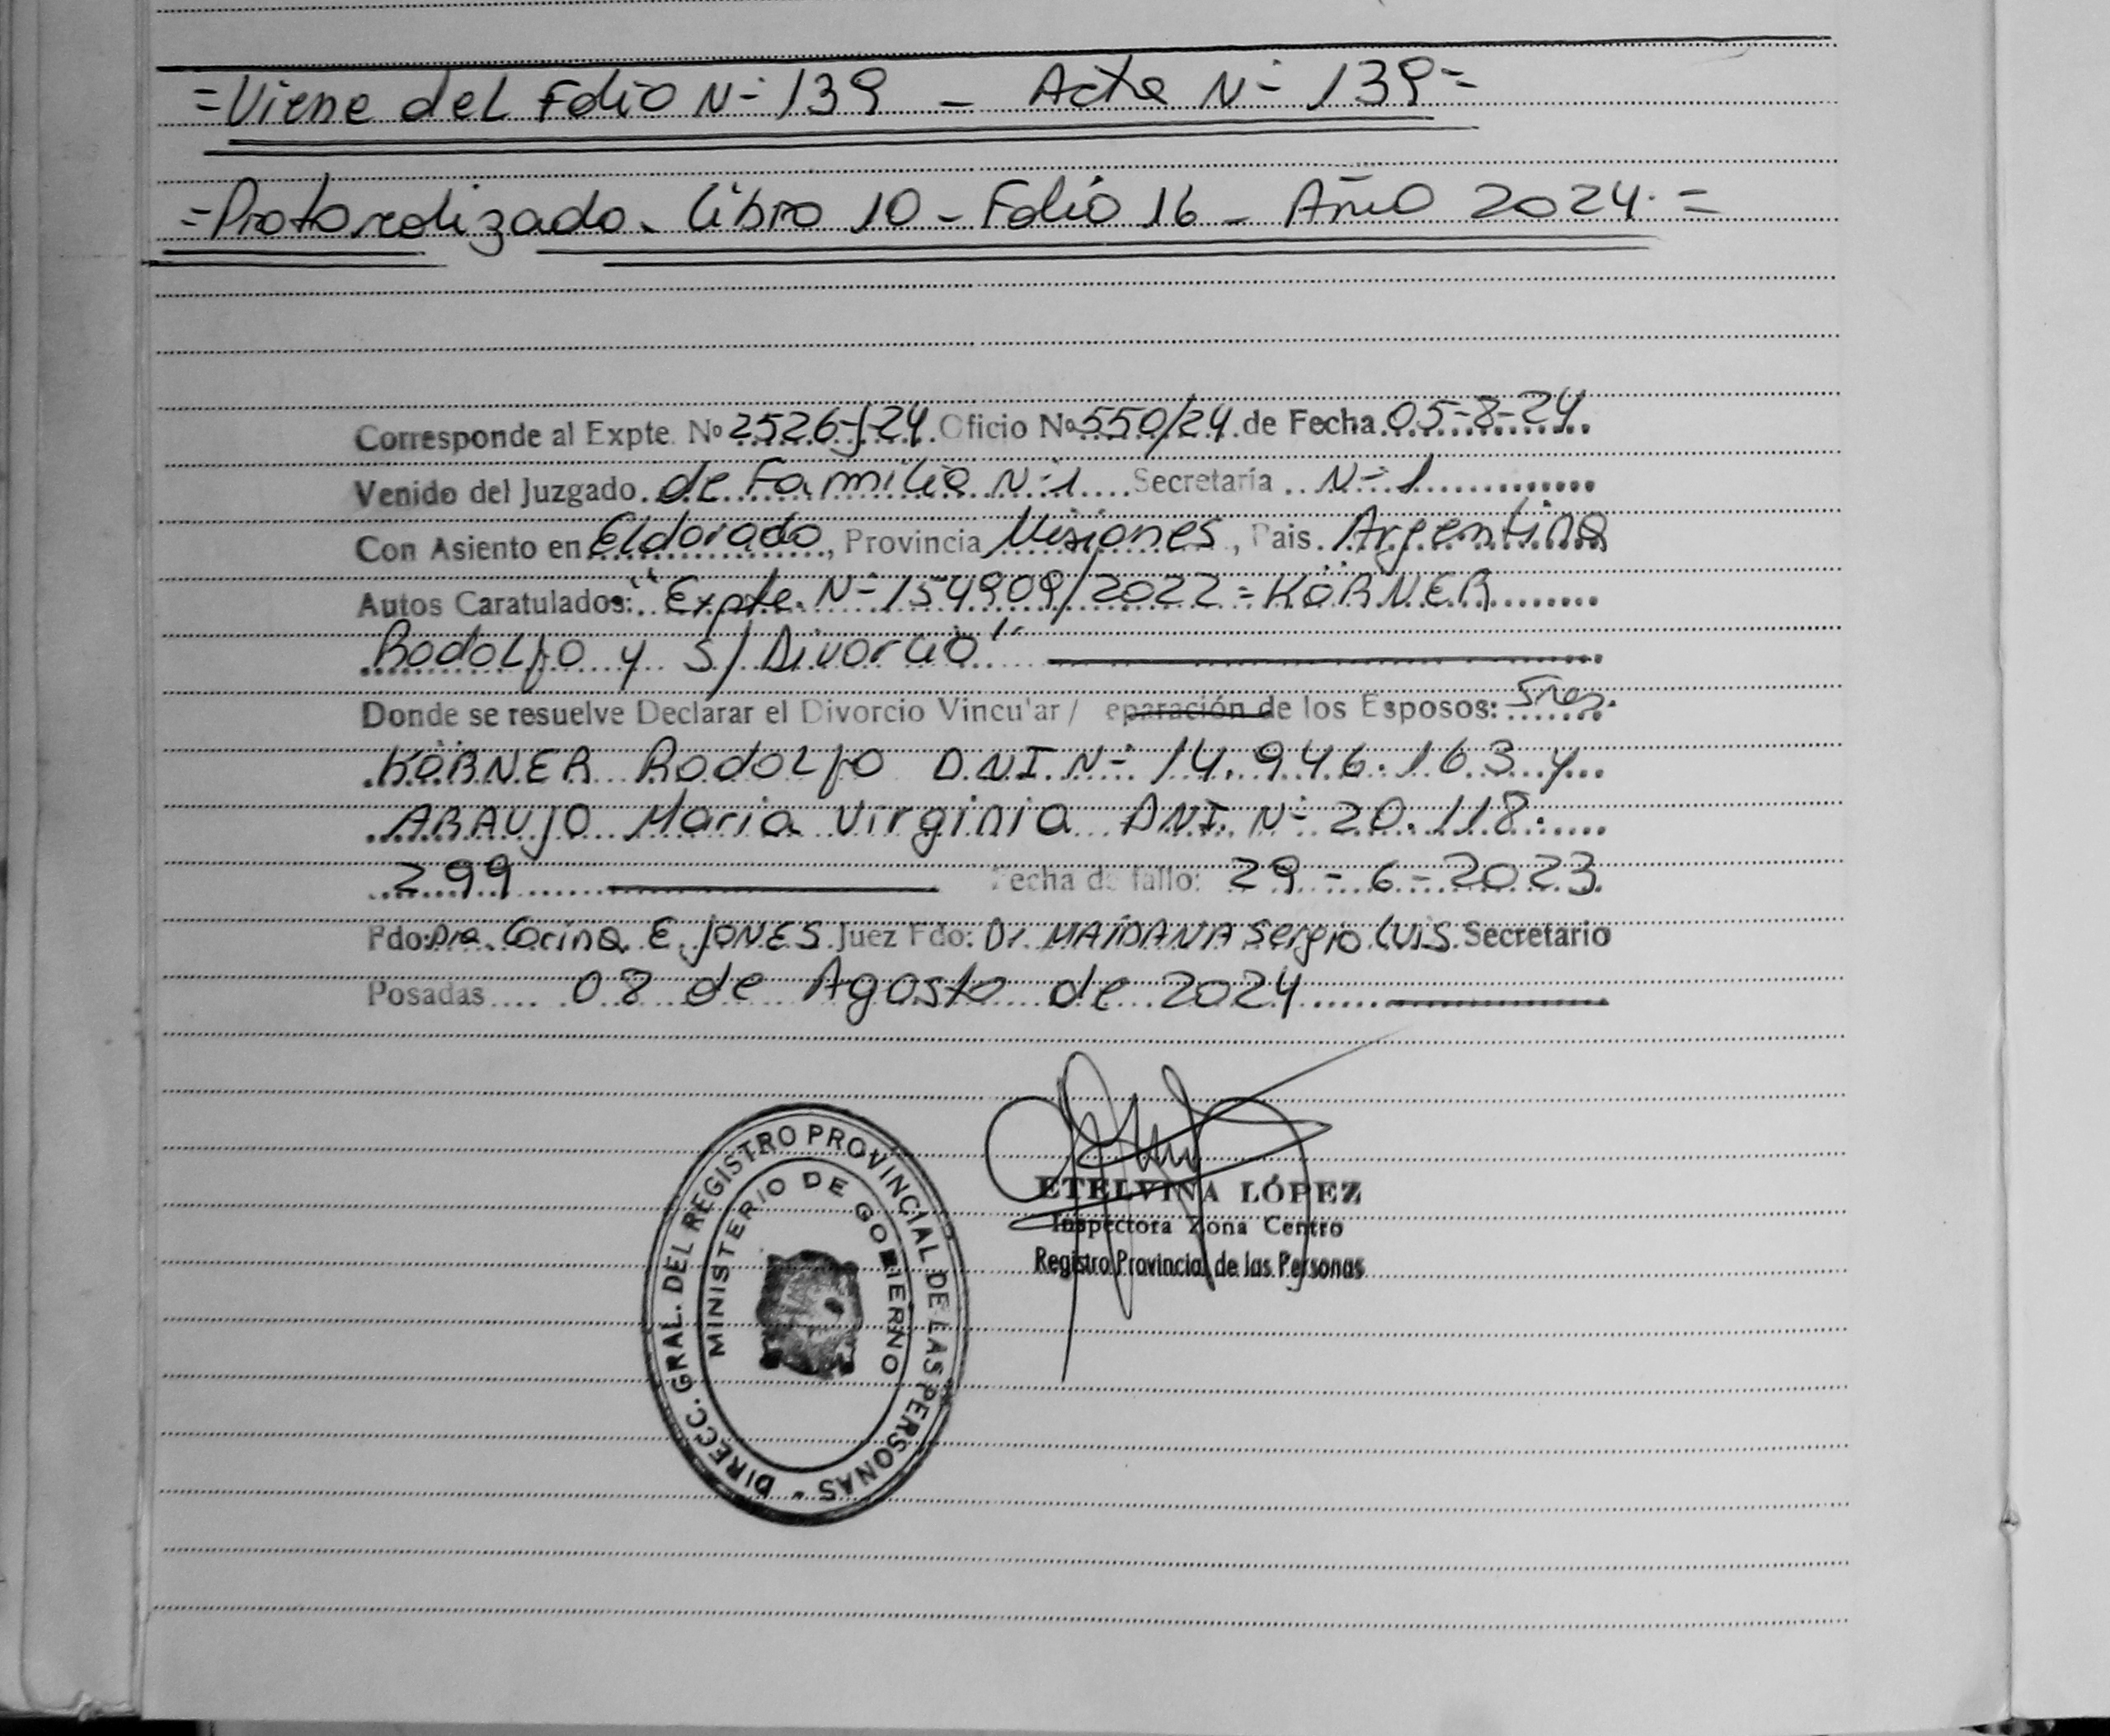 =Viene del Folio N- 139 - Acta N- 139=
=Protocolizado. Libro 10 - Folio 16 - Año 2024. =
Corresponde al Expte. Nº 2526-J-24. Oficio Nº 550/24 de Fecha 05-8-24.
Venido del Juzgado de Familia N-1 Secretaría N-1
Con Asiento en Eldorado, Provincia Misiones, Pais Argentina
Autos Caratulados: "Expte. N- 154909/2022 = KÖRNER
Rodolfo y S/ Divorcio"
Donde se resuelve Declarar el Divorcio Vincular / eparación de los Esposos: Sres.
KÖRNER Rodolfo D.N.I. N- 14.946.163 y
ARAUJO Maria Virginia DNI. N- 20.118.
299 Fecha de fallo: 29-6-2023.
Fdo: Dra. Corina E. JONES Juez Fdo: Dr MAIDANA Sergio Luis Secretario
Posadas 08 de Agosto de 2024
ETELVINA LÓPEZ
Inspectora Zona Centro
Registro Provincial de las Personas
DIRECC. GRAL. DEL REGISTRO PROVINCIAL DE LAS PERSONAS -
MINISTERIO DE GOBIERNO